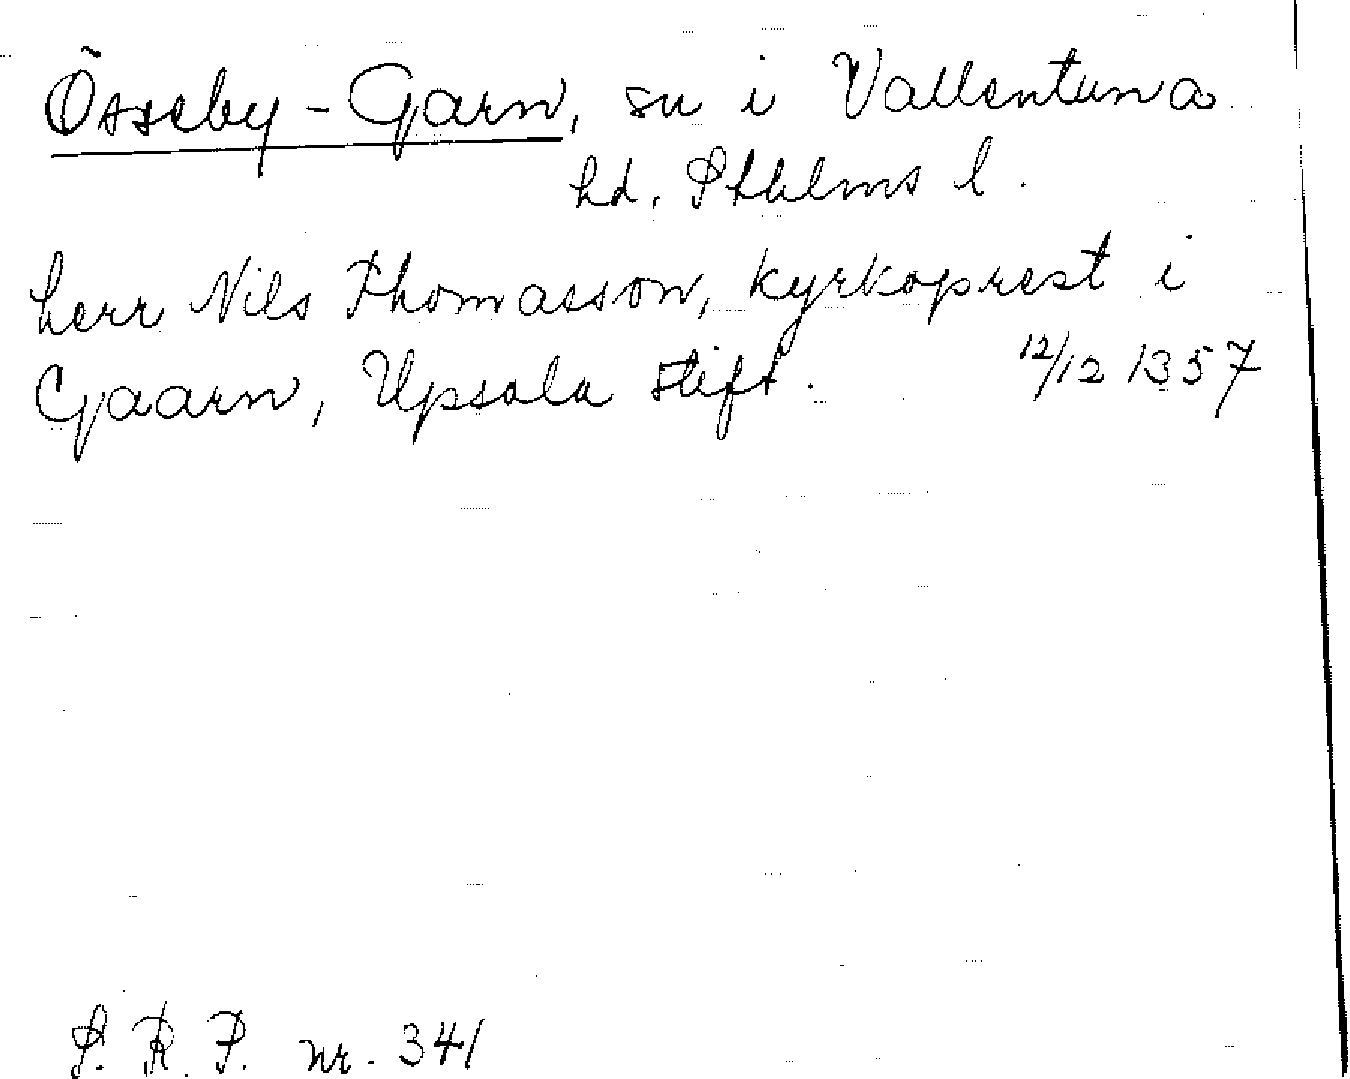 Össeby-Garn, sn i Vallentuna
hd, Sthlms l.
herr Nils Thomasson, kyrkoprest i
Gaarn, Upsala stift. 12/12 1357
S. R. P. nr. 341